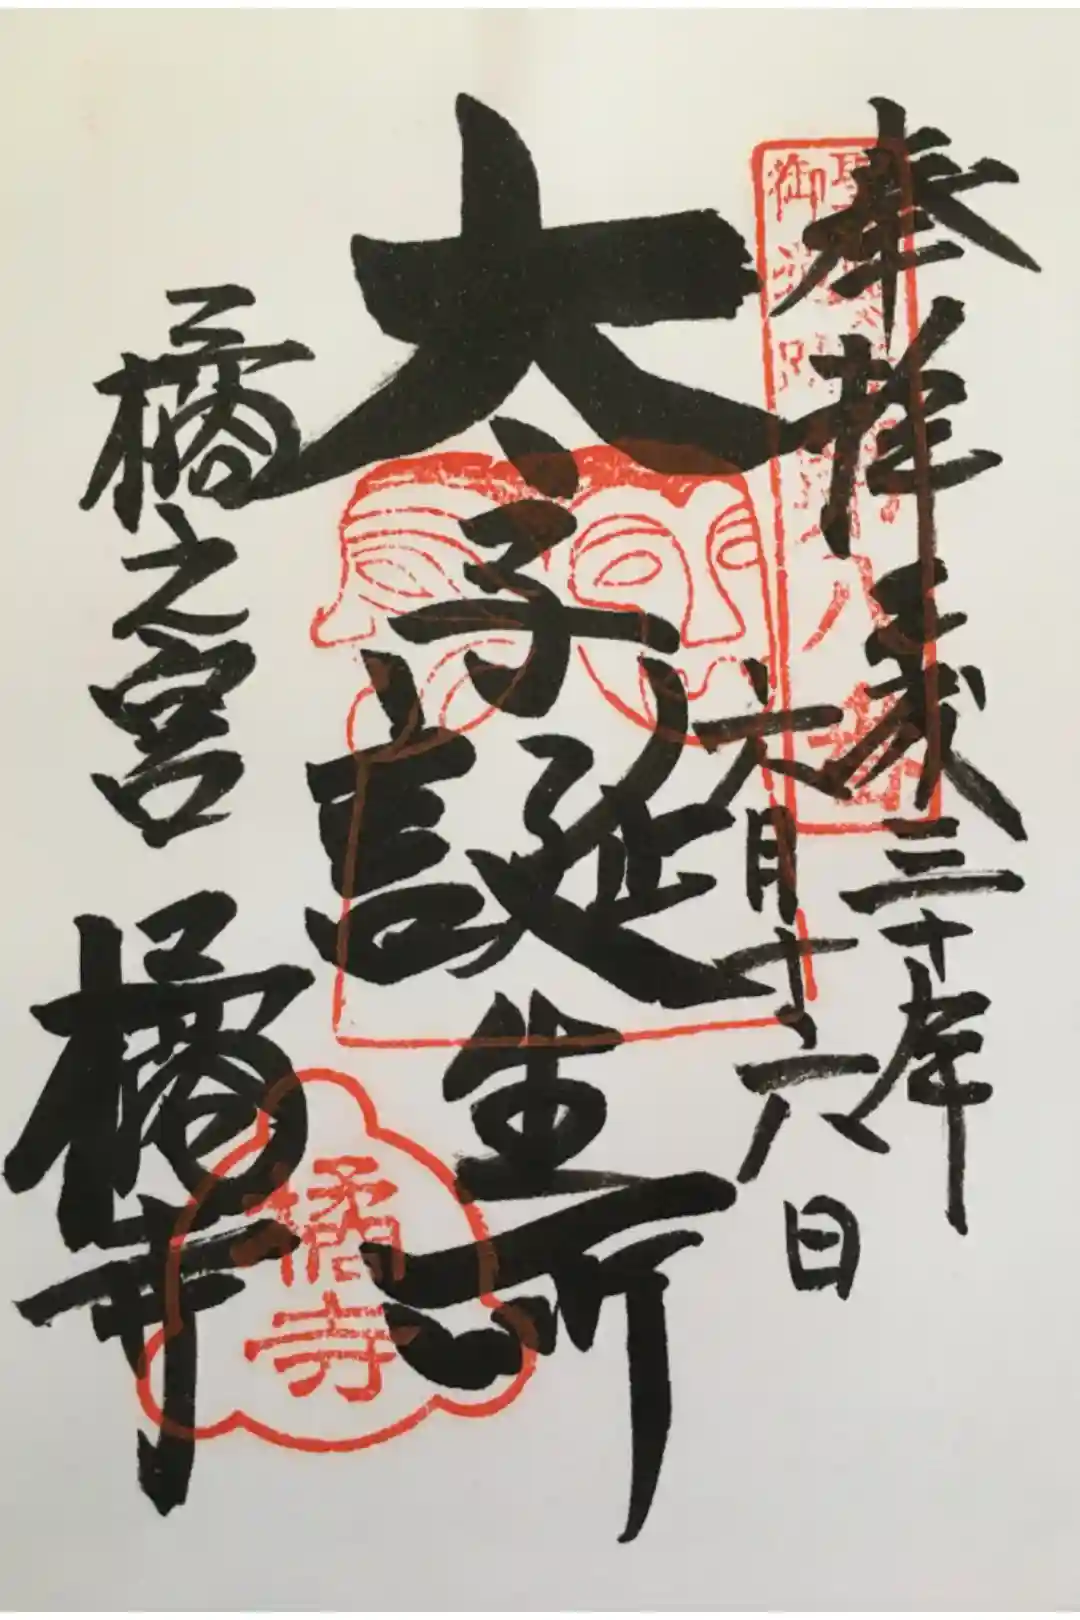 奉拝
平成三十年
六月十六日
聖徳太子
御遺跡
第八番
太子誕生所
橘之宮 橘寺
橘寺